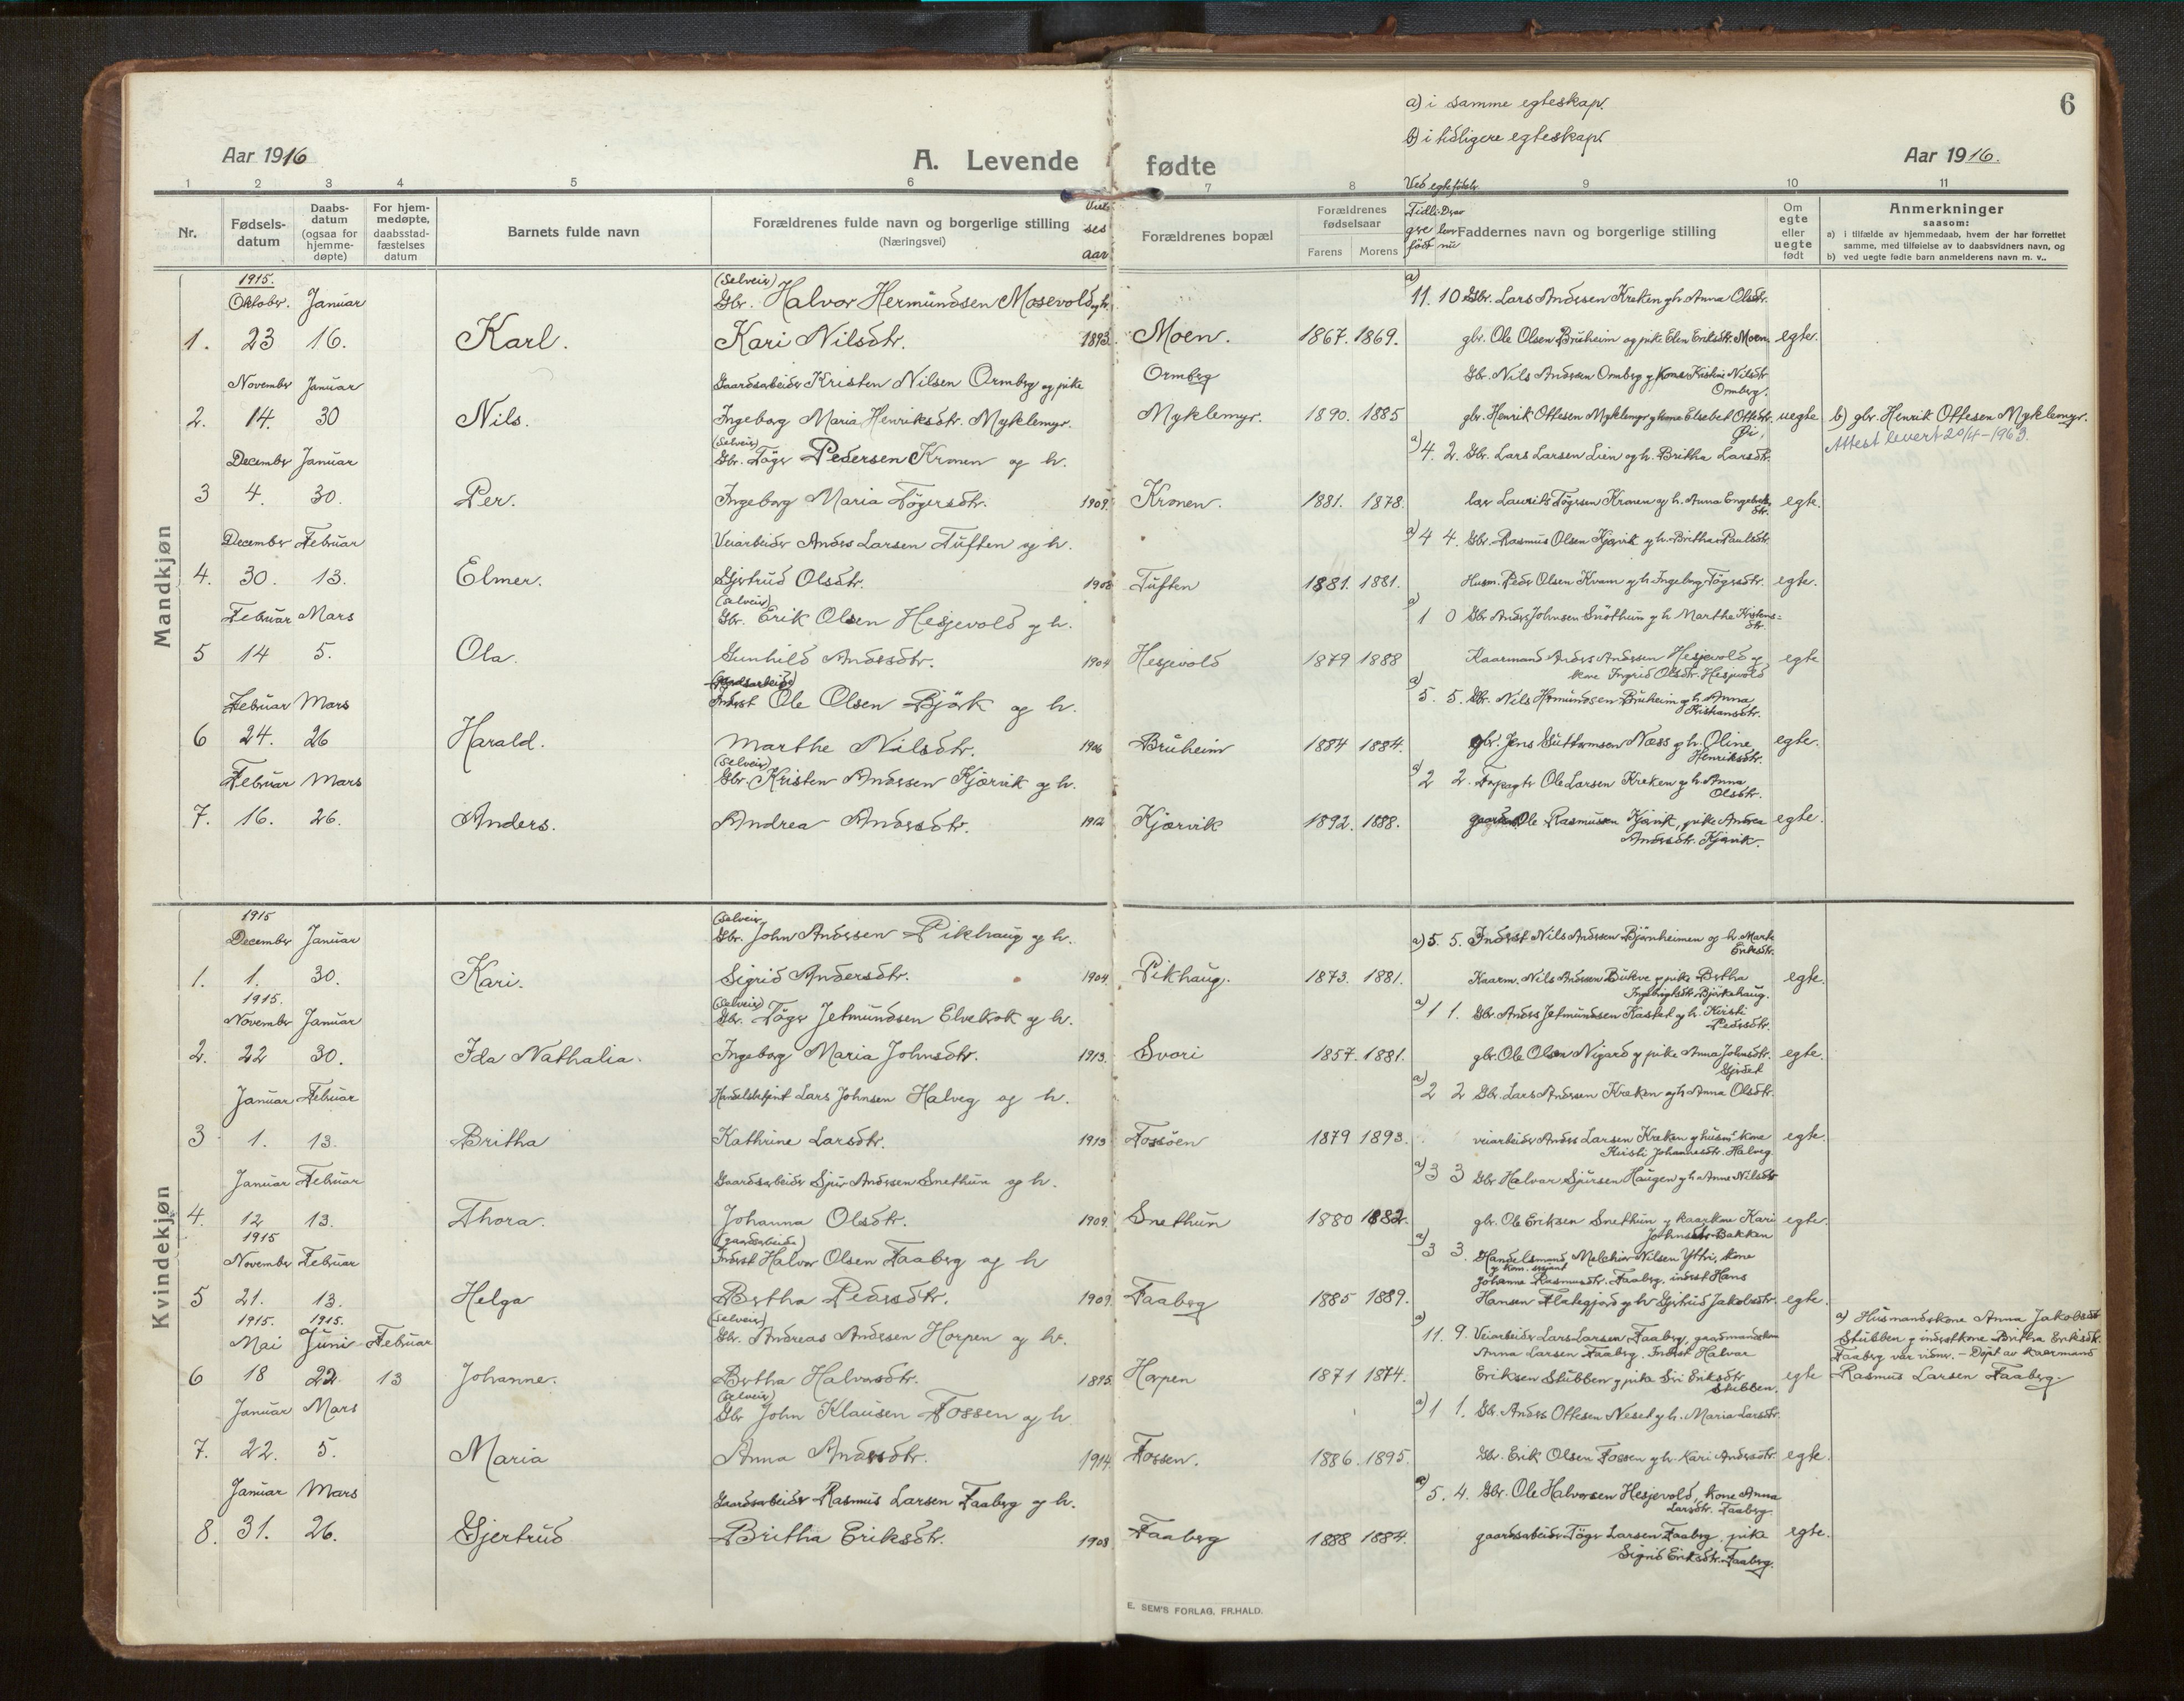 a) i samme egteskap.
6
b) i tidligere egteskap.
Aar 1916
A. Levende fødte
Aar 1916.
1 2 3 4 5 6 7 8 9 10 11
Nr.
Fødsels-
datum
Daabs-
datum
(ogsaa for
hjemme-
døpte)
For hjem-
medøpte,
daabsstad-
fæstelses
datum
Barnets fulde navn
Forældrenes fulde navn og borgerlige stilling
(Næringsvei)
Viel-
ses
aar
Forældrenes bopæl
Forældrenes
fødselsaar
Farens Morens
Ved egte fødsler
Tidli- Derav
gre lever
født nu
Faddernes navn og borgerlige stilling
Om
egte
eller
uegte
født
Anmerkninger
saasom:
a) i tilfælde av hjemmedaab, hvem der har forrettet
samme, med tilføielse av to daabsvidners navn, og
b) ved uegte fødte barn anmelderens navn m. v..
Mandkjøn
1915. (Selveier) a)
Oktober. Januar Gbr. Halvor Hermundsen Mosevold og h. 11. 10 Gbr. Lars Anderssen Kreken og h. Anna Olsdtr.
1. 23 16. Karl. Kari Nilsdtr. 1893. Moen. 1867. 1869. gbr. Ole Olsen Bruheim og pike Elen Eriksdtr. Moen. egte.
November Januar Gaardsarbeider Kristen Nilsen Ormberg og pike Ormberg Gbr. Nils Andersen Ormberg og kone Kistine Nilsdtr.
Ormberg.
2. 14. 30 Nils. Ingeborg Maria Henriksdtr. Myklemyr. Myklemyr. 1890. 1885 gbr. Henrik Ottesen Myklemyr og kone Elsebet Ottesdtr. uegte b) gbr. Henrik Ottesen Myklemyr.
Attest levert 20/4-1963.
(Selveier) a)
December Januar Gbr. Tøger Pedersen Kronen og h. 4. 2. Gbr. Lars Larsen Lien og h. Britha Larsdtr.
3 4. 30. Per. Ingeborg Maria Tøgersdtr. 1909. Kronen. 1881. 1878. Laurits Tøgersen Kronen og h. Anna Engebrets- egte.
dtr.
December Februar Veiarbeider Anders Larsen Tuften og h. a) 4 4. Gbr. Rasmus Olsen Kjærvik og h. Britha Paulsdtr.
4. 30. 13. Elmer. Gjertrud Olsdtr. 1908 Tuften 1881. 1881. Husm. Peder Olsen Kvam og h. Ingeborg Tøgersdtr. egte.
(selveier) a)
Februar Mars Gbr. Erik Olsen Hesjevold og h. 1 0 Gbr Anders Johnsen Snøthun og h Marthe Kristens-
dtr.
5 14 5. Ola. Gunhild Andersdtr. 1904 Hesjevold 1879 1888 Kaarmand Anders Andersen Hesjevold og egte
kone Ingrid Olsdtr. Hesjevold
(gaardsarbeider) a)
Februar Mars Inderst Ole Olsen Bjørk og h. 5. 5. Gbr. Nils Hermundsen Bruheim og h. Anna
Kristiansdtr.
6 24. 26 Harald. Marthe Nilsdtr. 1906 Bruheim 1884 1884. gbr. Jens Guttormsen Næss og h. Oline egte.
Henriksdtr.
(selveier) a)
Februar Mars Gbr. Kristen Anderssen Kjærvik og h. 2 2. Forpagter Ole Larsen Kreken og h. Anna
Olsdtr.
7. 16. 26. Anders. Andrea Andersdtr. 1912 Kjærvik 1892. 1888. Ole Rasmussen Kjærvik, pike Andrea egte.
Andersdtr. Kjærvik.
Kvindekjøn
1915 (Selveier
December Januar Gbr. John Anderssen Pikhaug og h. a) 5. 5. Inderst Nils Andersen Bjørnheimen og h. Marte
Eriksdtr.
1. 1. 30. Kari. Sigrid Andersdtr. 1904. Pikhaug. 1873. 1881. Kaarm. Nils Andersen Bukve og pike Bertha egte.
Ingebrigtsdtr. Bjørkehaug.
1915. (Selveier) a)
November Januar Gbr. Tøger Jetmundsen Elvekrok og h. 1 1. Gbr. Anders Jetmundsen Kastet og h. Kirsti
Pedersdtr.
2. 22 30. Ida Nathalia. Ingeborg Maria Johnsdtr. 1913. Svori 1857. 1881. gbr. Ole Olsen Nigard og pike Anna Johnsdtr. egte.
Januar Februar Handelsbetjent Lars Johnsen Halveg og h. a) 2 2 Gbr. Lars Andersen Kreken og h Anna Olsdtr.
3 1. 13. Britha Kathrine Larsdtr. 1913 Fossøen 1879 1893. veiarbeider Anders Larsen Kreken og husm. kone egte.
Kirsti Johannesdtr. Halveg
Januar Februar Gaardsarbeider Sjur Andersen Snethun og h. a) 3 3 Gbr Halvar Sjursen Haugen og h Anne Nilsdtr
4. 12 13. Thora. Johanna Olsdtr. 1909. Snethun 1880 1882. gbr. Ole Eriksen Snethun og kaarkone Kari egte.
Johnsdtr Bakken
1915 (gaardsarbeider) a)
November Februar Inderst Halvor Olsen Faaberg og h 3 3. Handelsmand Melchior Nilsen Yttri, kone
Johanne Rasmusdtr. Faaberg, inderst Hans
5 21. 13. Helga Bertha Pedersdtr. 1909. Faaberg 1885 1889. Hansen Flategjord og h Gjertrud Jakobsdtr. egte.
1915. 1915. (selveier) a)
Mai Juni Februar Gbr. Andreas Anderssen Horpen og h. 11. 9. Veiarbeider Lars Larsen Faaberg, gaardmandskone
Anna Larsen Faaberg, Inderst Halvar
6 18 22. 13 Johanne. Bertha Halvorsdtr. 1895. Horpen 1871 1874. Eriksen Stubben og pike Siri Eriksdtr. egte
Stubben.
a) Husmandskone Anna Jakobsdtr
Stubben og inderstkone Britha Eriksdtr.
Faaberg var vidner. – Døpt av kaarmand
Rasmus Larsen Faaberg.
(selveier)
Januar Mars Gbr John Klausen Fossen og h a) 1 1. Gbr. Anders Ottesen Neset og h. Maria Larsdtr.
7. 22. 5. Maria Anna Andersdtr. 1914. Fossen. 1886. 1895. Gbr. Erik Olsen Fossen og h. Kari Andersdtr. egte.
Januar Mars Gaardsarbeider Rasmus Larsen Faaberg og h. a) 5. 4. Gbr. Ole Halvorsen Hesjevold, kone Anna
Larsdtr. Faaberg
8. 31. 26. Gjertrud Britha Eriksdtr. 1908 Faaberg 1888 1884. gaardsarbeider Tøger Larsen Faaberg, pike egte.
Sigrid Eriksdtr. Faaberg.
E. SEM'S FORLAG, FR.HALD.